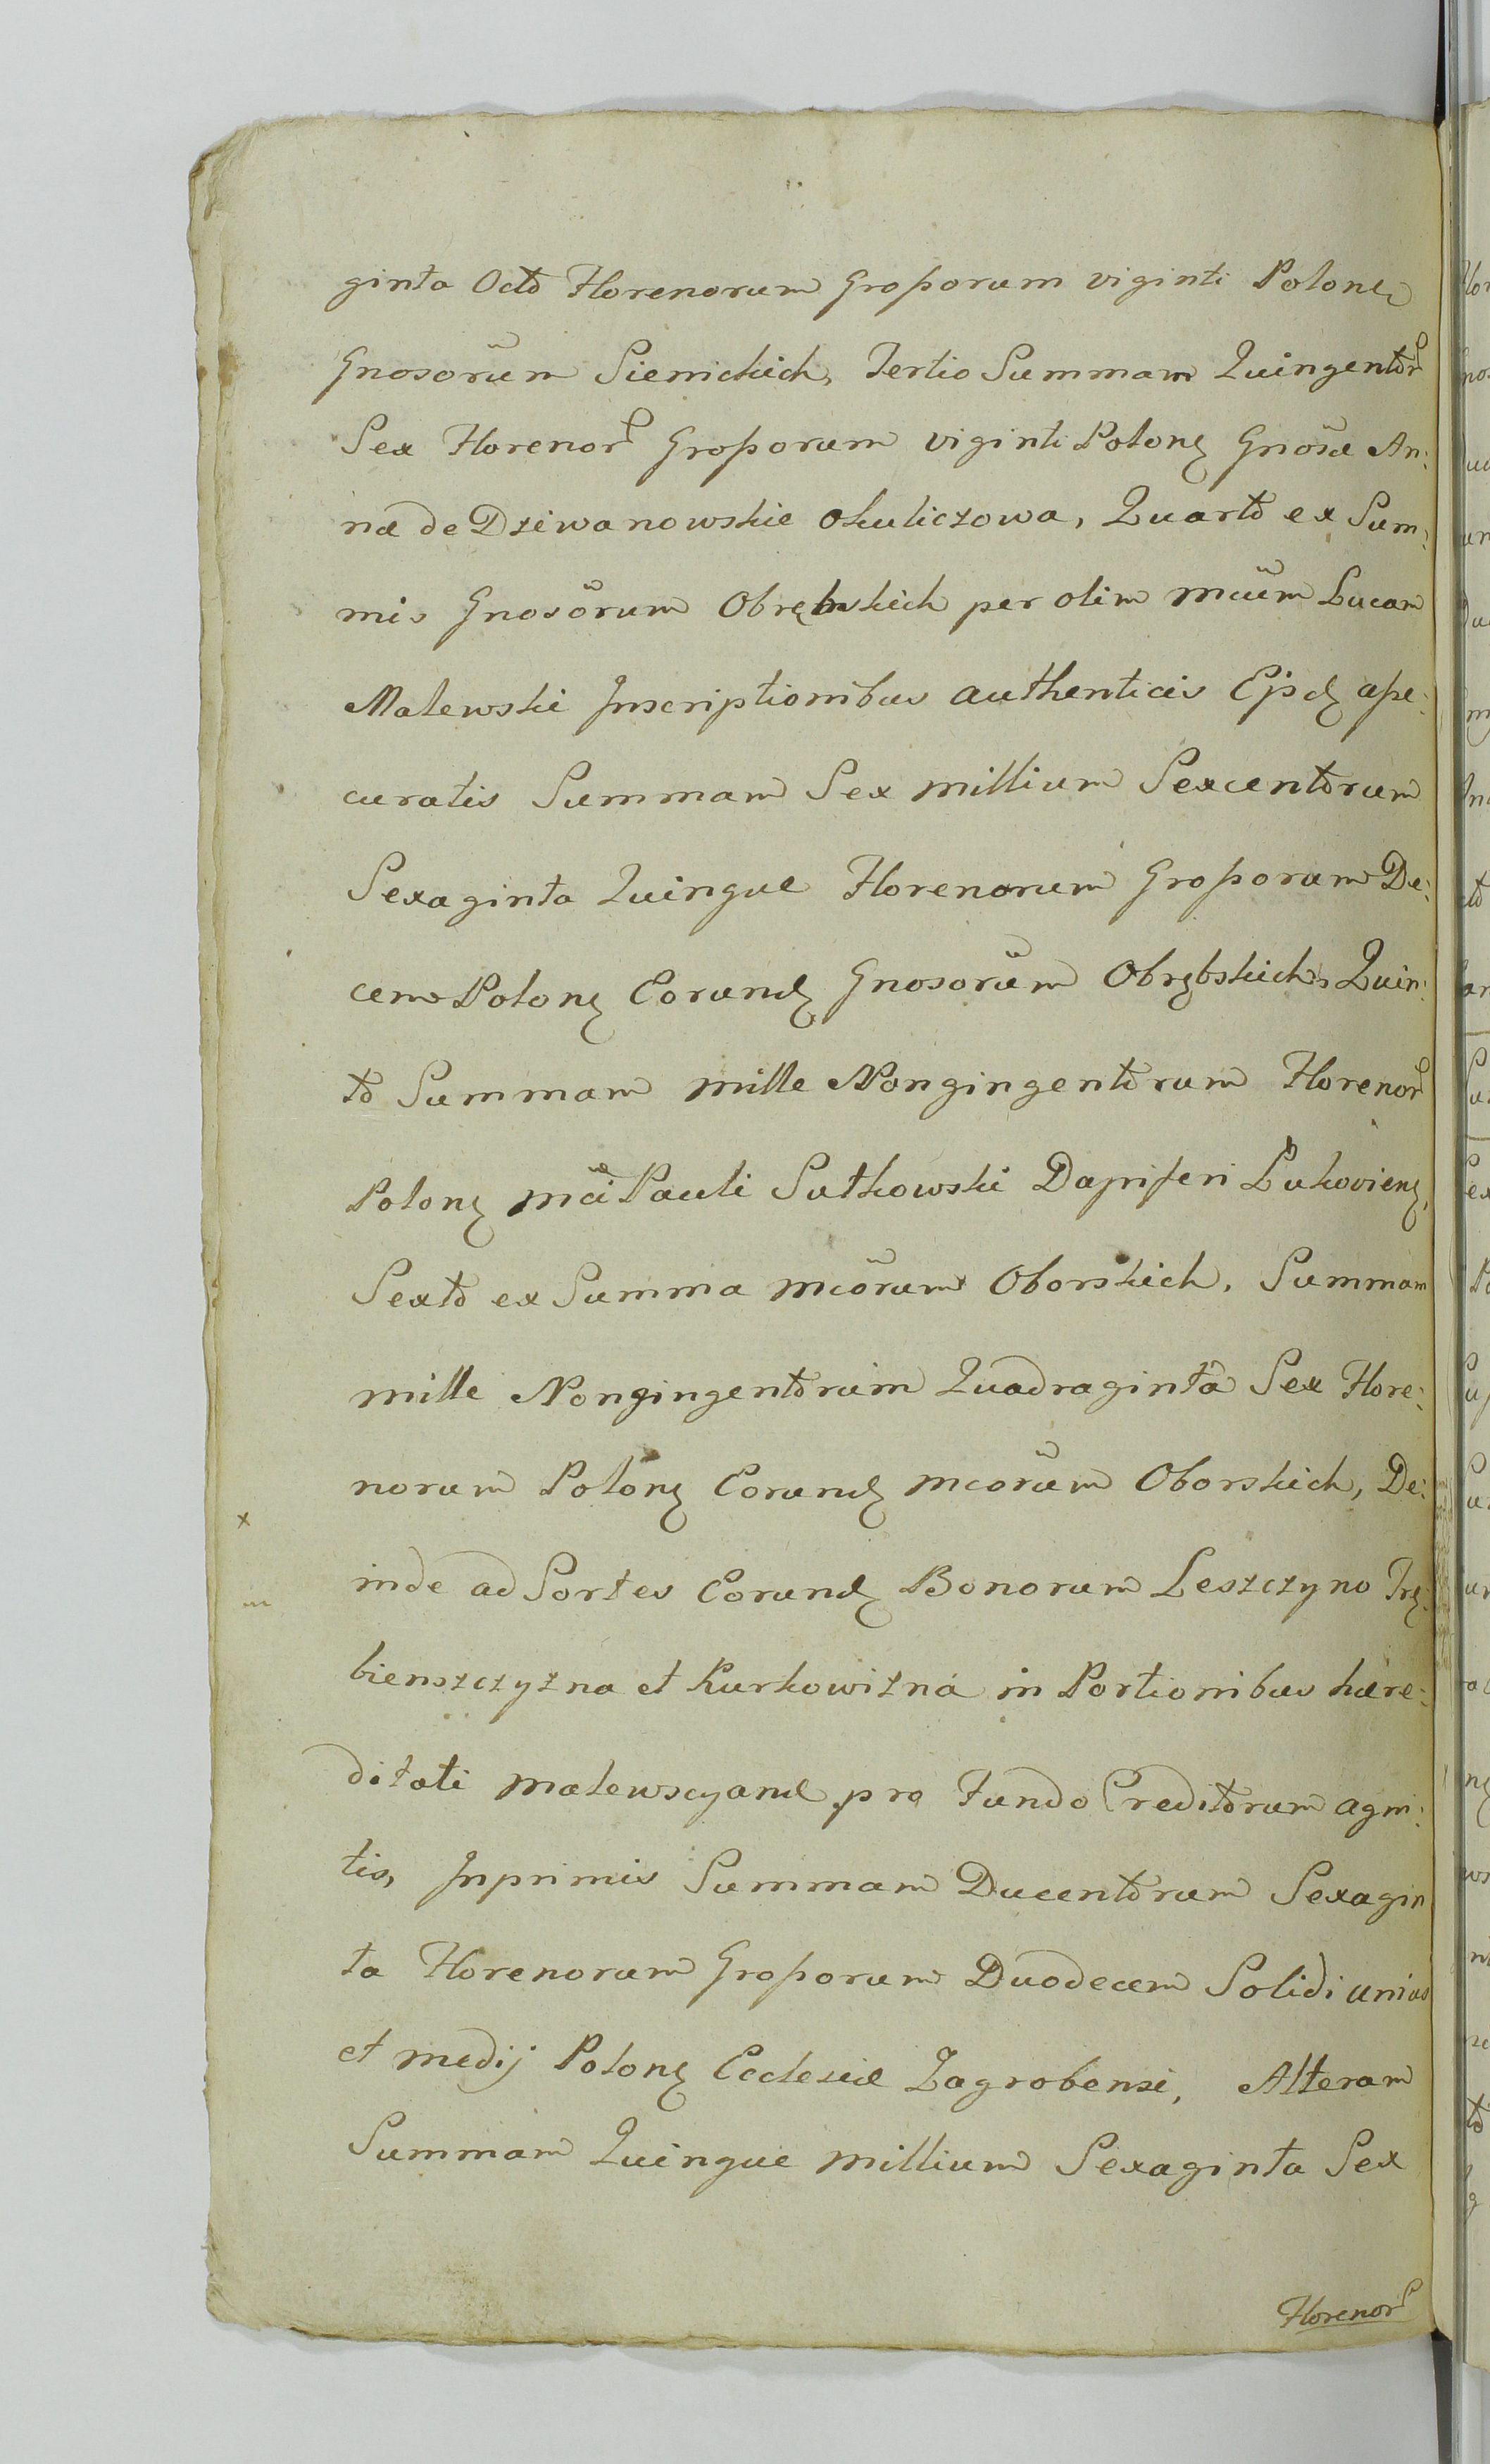 ginta Octo Florenorum Grossorum viginti Polonę
Gnosorum Sienickich, Tertio Summam Quingentor
Sex Florenor Grossorum viginti Polonę Gnosæ An:
næ de Dziewanowskie Okuliczowa, Quarto ex Sum:
mis Gnosorum Obrębskich per olim Mcum Lucam
Malewski Inscriptionibus authenticis Ejsdę asse:
curatis Summam Sex millium Sexcentorum
Sexaginta Quinque Florenorum Grossorum De:
cem Polonę Eorundę Gnosorum Obrębskich, Quin:
to Summam mille Nongingentorum Florenor
Polonę Mci Pauli Sutkowski Dapiferi Łukovienę,
Sexto ex Summa Mcorum Oborskich, Summam
mille Nongingentorum Quadraginta Sex Flore:
norum Polonę Eorundę Mcorum Oborskich, De:
x
inde ad Sortes Eorundę Bonorum Leszczyno Trę:
bienszczyzna et Kurkowizna in Portionibus hære:
ditati Malewscyanæ pro Fundo Creditorum agni:
tis, Inprimis Summam Ducentorum Sexagin
ta Florenorum Grossorum Duodecem Solidi unius
et medij Polonę Ecclesiæ Zagrobensi, Alteram
Summam Quinque millium Sexaginta Sex
Florenor